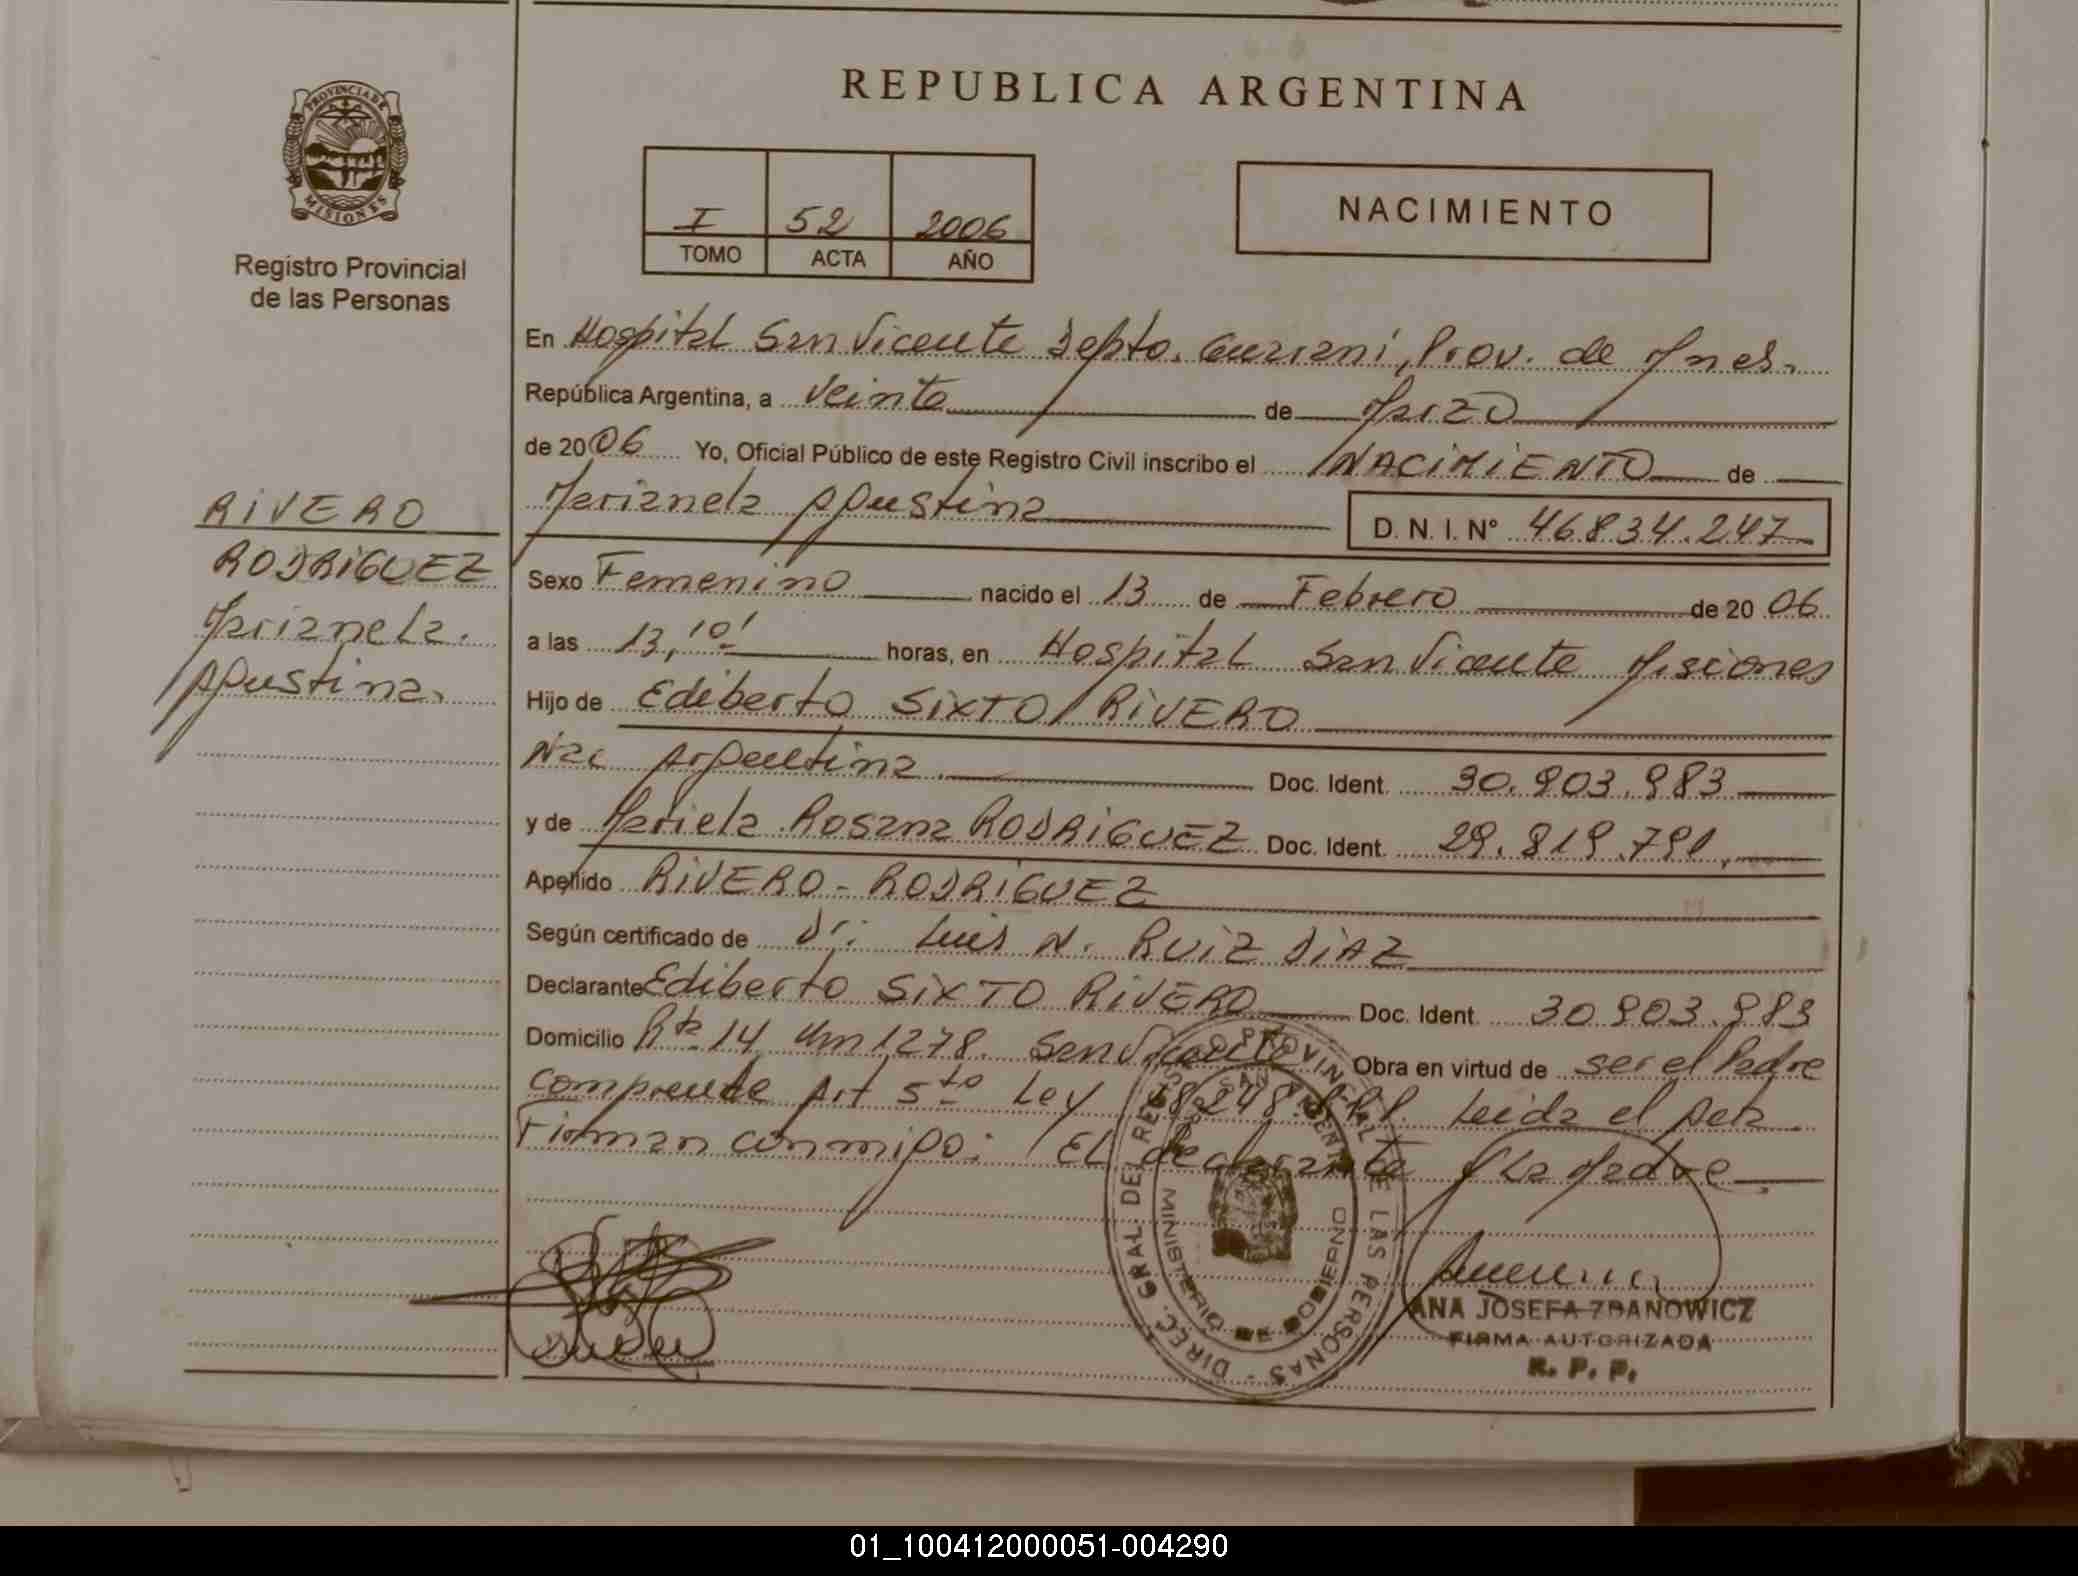 REPUBLICA ARGENTINA
PROVINCIA DE
MISIONES
Registro Provincial
de las Personas
I 52 2006
TOMO ACTA AÑO
NACIMIENTO
En Hospital San Vicente Depto. Guaraní, Prov. de Mnes.
República Argentina, a Veinte de Marzo
de 2006 Yo, Oficial Público de este Registro Civil inscribo el NACIMIENTO de
Marianela Agustina D. N. I. N° 46.834.247
RIVERO
RODRIGUEZ
Marianela.
Agustina.
Sexo Femenino nacido el 13 de Febrero de 2006
a las 13,10' horas, en Hospital San Vicente Misiones
Hijo de Ediberto SIXTO RIVERO
Nac Argentina Doc. Ident. 30.903.983
y de Mariela Rosana RODRIGUEZ Doc. Ident. 29.819.791.
Apellido RIVERO - RODRIGUEZ
Según certificado de Dr: Luis N. RUIZ DIAZ
Declarante Ediberto SIXTO RIVERO Doc. Ident. 30.903.983
Domicilio Rta 14 Km 1278. San Vicente Obra en virtud de ser el Padre
Comprende Art 5to Ley 18248. Leida el Acta
Firman conmigo: El declarante y La Madre.
DIREC. GRAL. DEL REGISTRO PROVINCIAL DE LAS PERSONAS
SAN VICENTE
MINISTERIO DE GOBIERNO
ANA JOSEFA ZDANOWICZ
FIRMA AUTORIZADA
R. P. P.
01_100412000051-004290